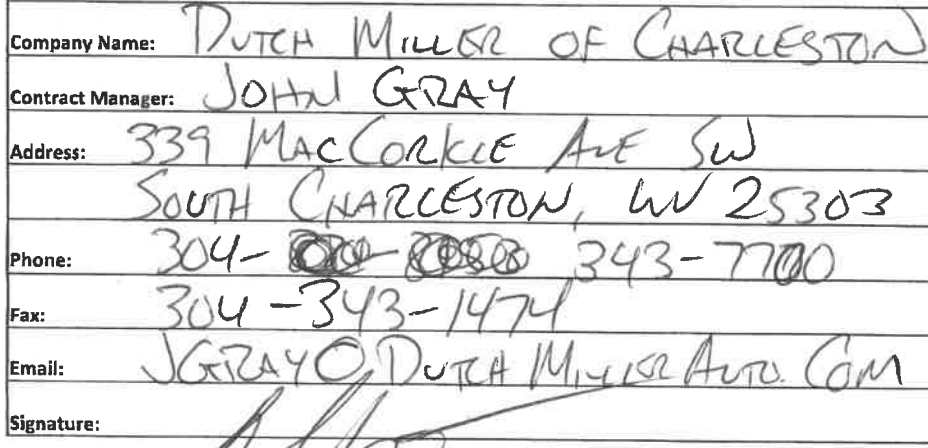 Company Name: DUTCH MILLER OF CHARLESTON
Contract Manager: JOHN GRAY
Address: 339 MACCORKLE AVE SW
SOUTH CHARLESTON, WV 25303
Phone: 304- 343-7700
Fax: 304-343-1474
Email: JGRAY@DUTCHMILLERAUTO.COM
Signature: